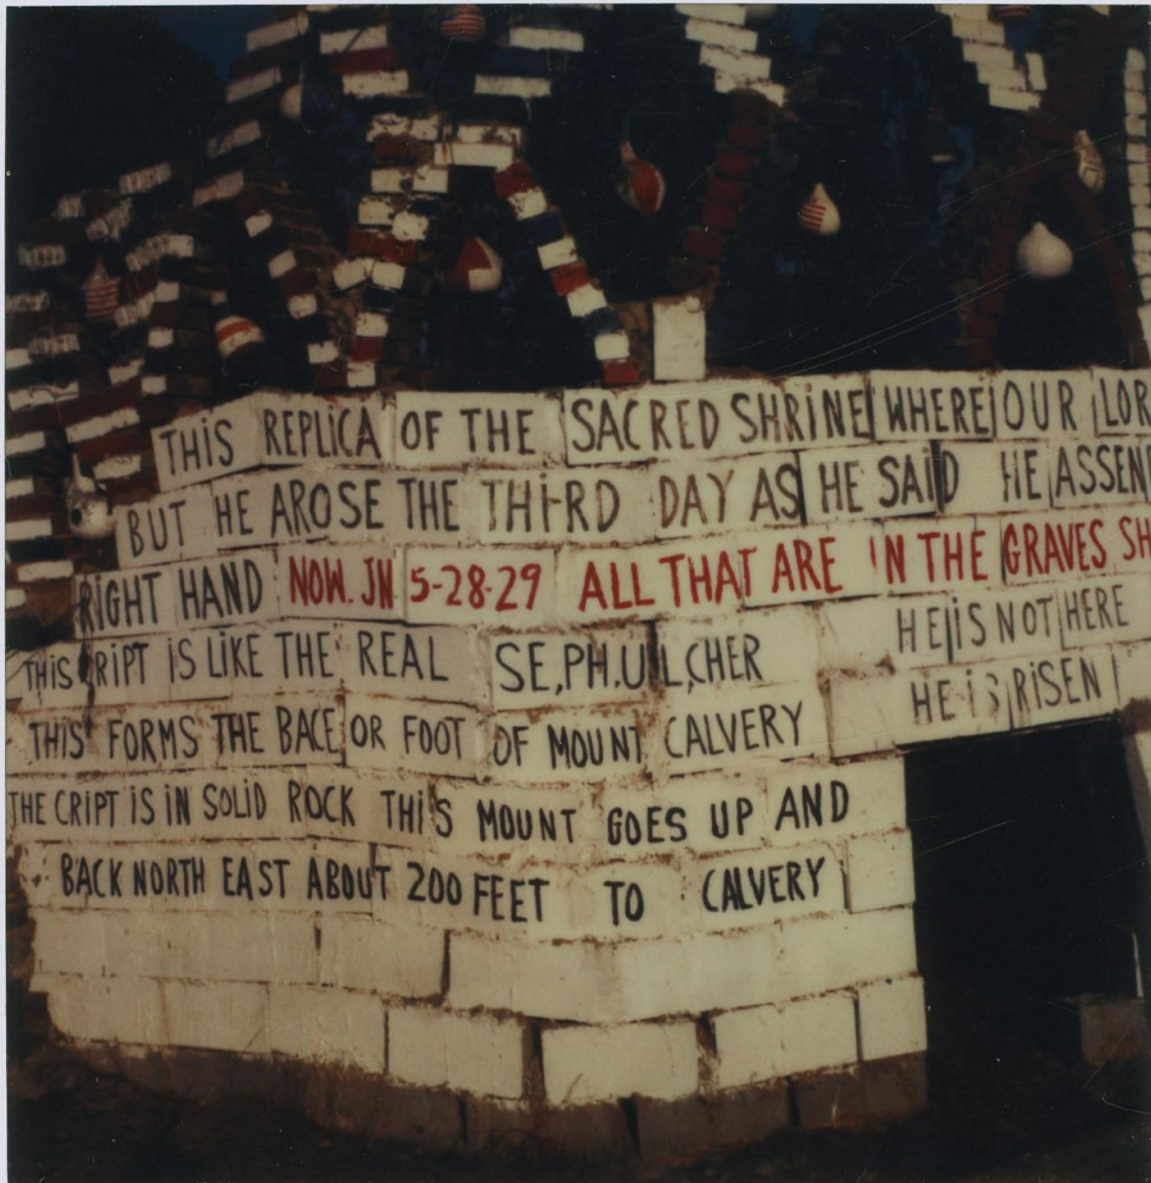 THIS REPLICA OF THE SACRED SHRINE WHERE OUR LOR
BUT HE AROSE THE THIRD DAY AS HE SAID HE ASSEN
RIGHT HAND NOW. JN 5-28-29 ALL THAT ARE IN THE GRAVES SH
THIS CRIPT IS LIKE THE REAL SE,PH.UL,CHER
HE IS NOT HERE
THIS FORMS THE BACE OR FOOT OF MOUNT CALVERY
HE IS RISEN
THE CRIPT IS IN SOLID ROCK THIS MOUNT GOES UP AND
BACK NORTH EAST ABOUT 200 FEET TO CALVERY